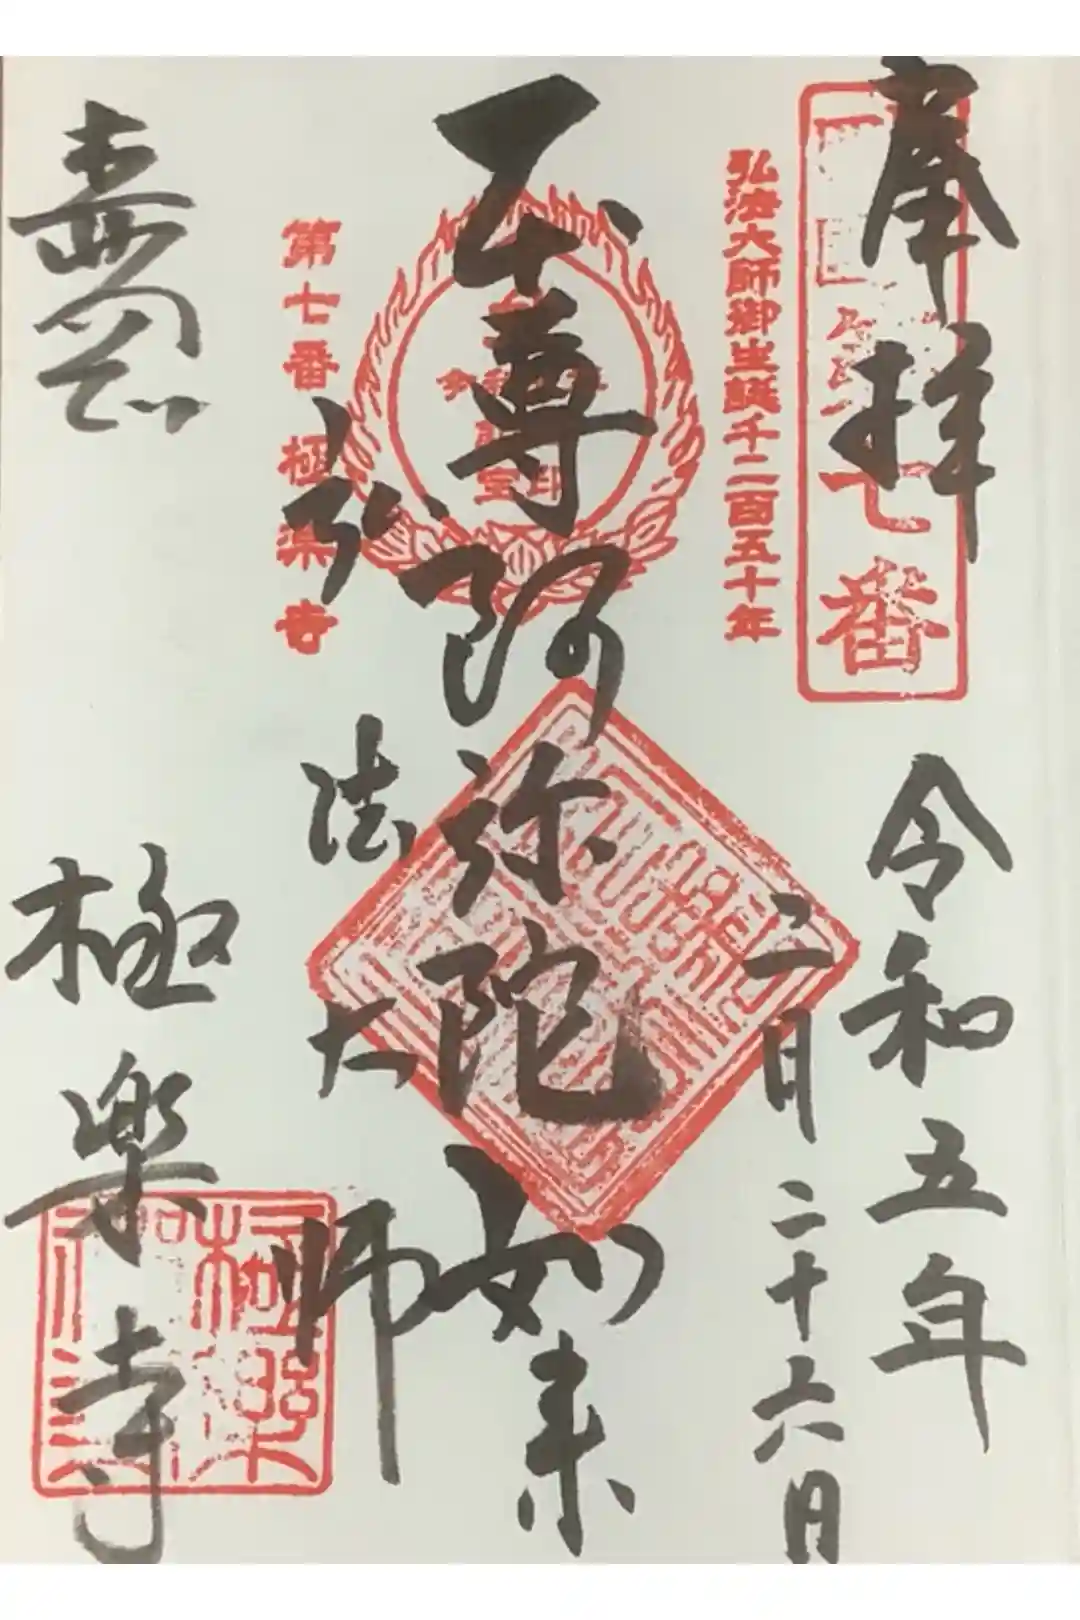 奉拝
令和五年
二月二十六日
七番
弘法大師御生誕千二百五十年
本尊阿弥陀如来
弘法大師
第七番 極楽寺
極楽寺